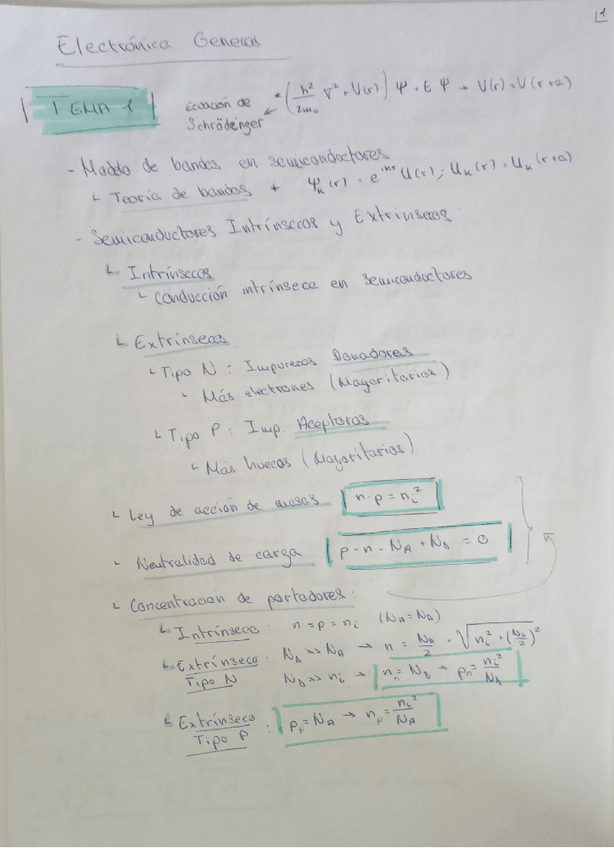 1
Electrónica General
TEMA 1
Ecuación de Schrödinger ← (ħ²/2m₀ ∇² + V(r)) Ψ = E Ψ → V(r) = V(r+a)
- Modelo de bandas en semiconductores
↳ Teoría de bandas → Ψₖ(r) = e^{ikr} U(r); Uₖ(r) = Uₖ(r+a)
- Semiconductores Intrínsecos y Extrínsecos
↳ Intrínsecos
↳ Conducción intrínseca en semiconductores
↳ Extrínsecos
↳ Tipo N : Impurezas Donadoras
↳ Más electrones (Mayoritarios)
↳ Tipo P : Imp. Aceptoras
↳ Más huecos (Mayoritarios)
↳ Ley de acción de masas n·p = nᵢ²
↳ Neutralidad de carga p - n - N_A + N_D = 0
↳ Concentración de portadores:
↳ Intrínseco: n = p = nᵢ (N_A = N_D)
↳ Extrínseco Tipo N : N_D >> N_A → n = N_D/2 + √(nᵢ² + (N_D/2)²)
N_D >> nᵢ → nₙ = N_D → pₙ = nᵢ²/N_D
↳ Extrínseco Tipo P : pₚ = N_A → nₚ = nᵢ²/N_A